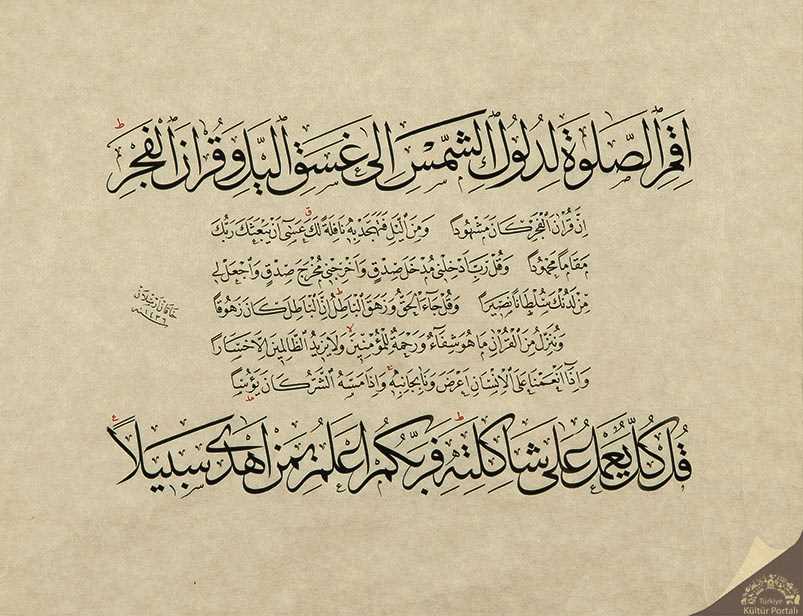 اَقِمِ الصَّلٰوةَ لِدُلُوكِ الشَّمْسِ اِلٰى غَسَقِ الَّيْلِ وَقُرْاٰنَ الْفَجْرِ ط
اِنَّ قُرْاٰنَ الْفَجْرِ كَانَ مَشْهُودًا وَمِنَ الَّيْلِ فَتَهَجَّدْ بِهٖ نَافِلَةً لَكَ ق عَسٰى اَنْ يَبْعَثَكَ رَبُّكَ
مَقَامًا مَحْمُودًا وَقُلْ رَبِّ اَدْخِلْنِي مُدْخَلَ صِدْقٍ وَاَخْرِجْنِي مُخْرَجَ صِدْقٍ وَاجْعَلْ لِي
مِنْ لَدُنْكَ سُلْطَانًا نَصِيرًا وَقُلْ جَاءَ الْحَقُّ وَزَهَقَ الْبَاطِلُ ط اِنَّ الْبَاطِلَ كَانَ زَهُوقًا
وَنُنَزِّلُ مِنَ الْقُرْاٰنِ مَا هُوَ شِفَاءٌ وَرَحْمَةٌ لِلْمُؤْمِنِينَ لا وَلَا يَزِيدُ الظَّالِمِينَ اِلَّا خَسَارًا
وَاِذَا اَنْعَمْنَا عَلَى الْاِنْسَانِ اَعْرَضَ وَنَاٰ بِجَانِبِهٖ ج وَاِذَا مَسَّهُ الشَّرُّ كَانَ يَؤُسًا
قُلْ كُلٌّ يَعْمَلُ عَلٰى شَاكِلَتِهٖ ط فَرَبُّكُمْ اَعْلَمُ بِمَنْ هُوَ اَهْدٰى سَبِيلًا ع
١٤٣٦
Türkiye
Kültür Portalı